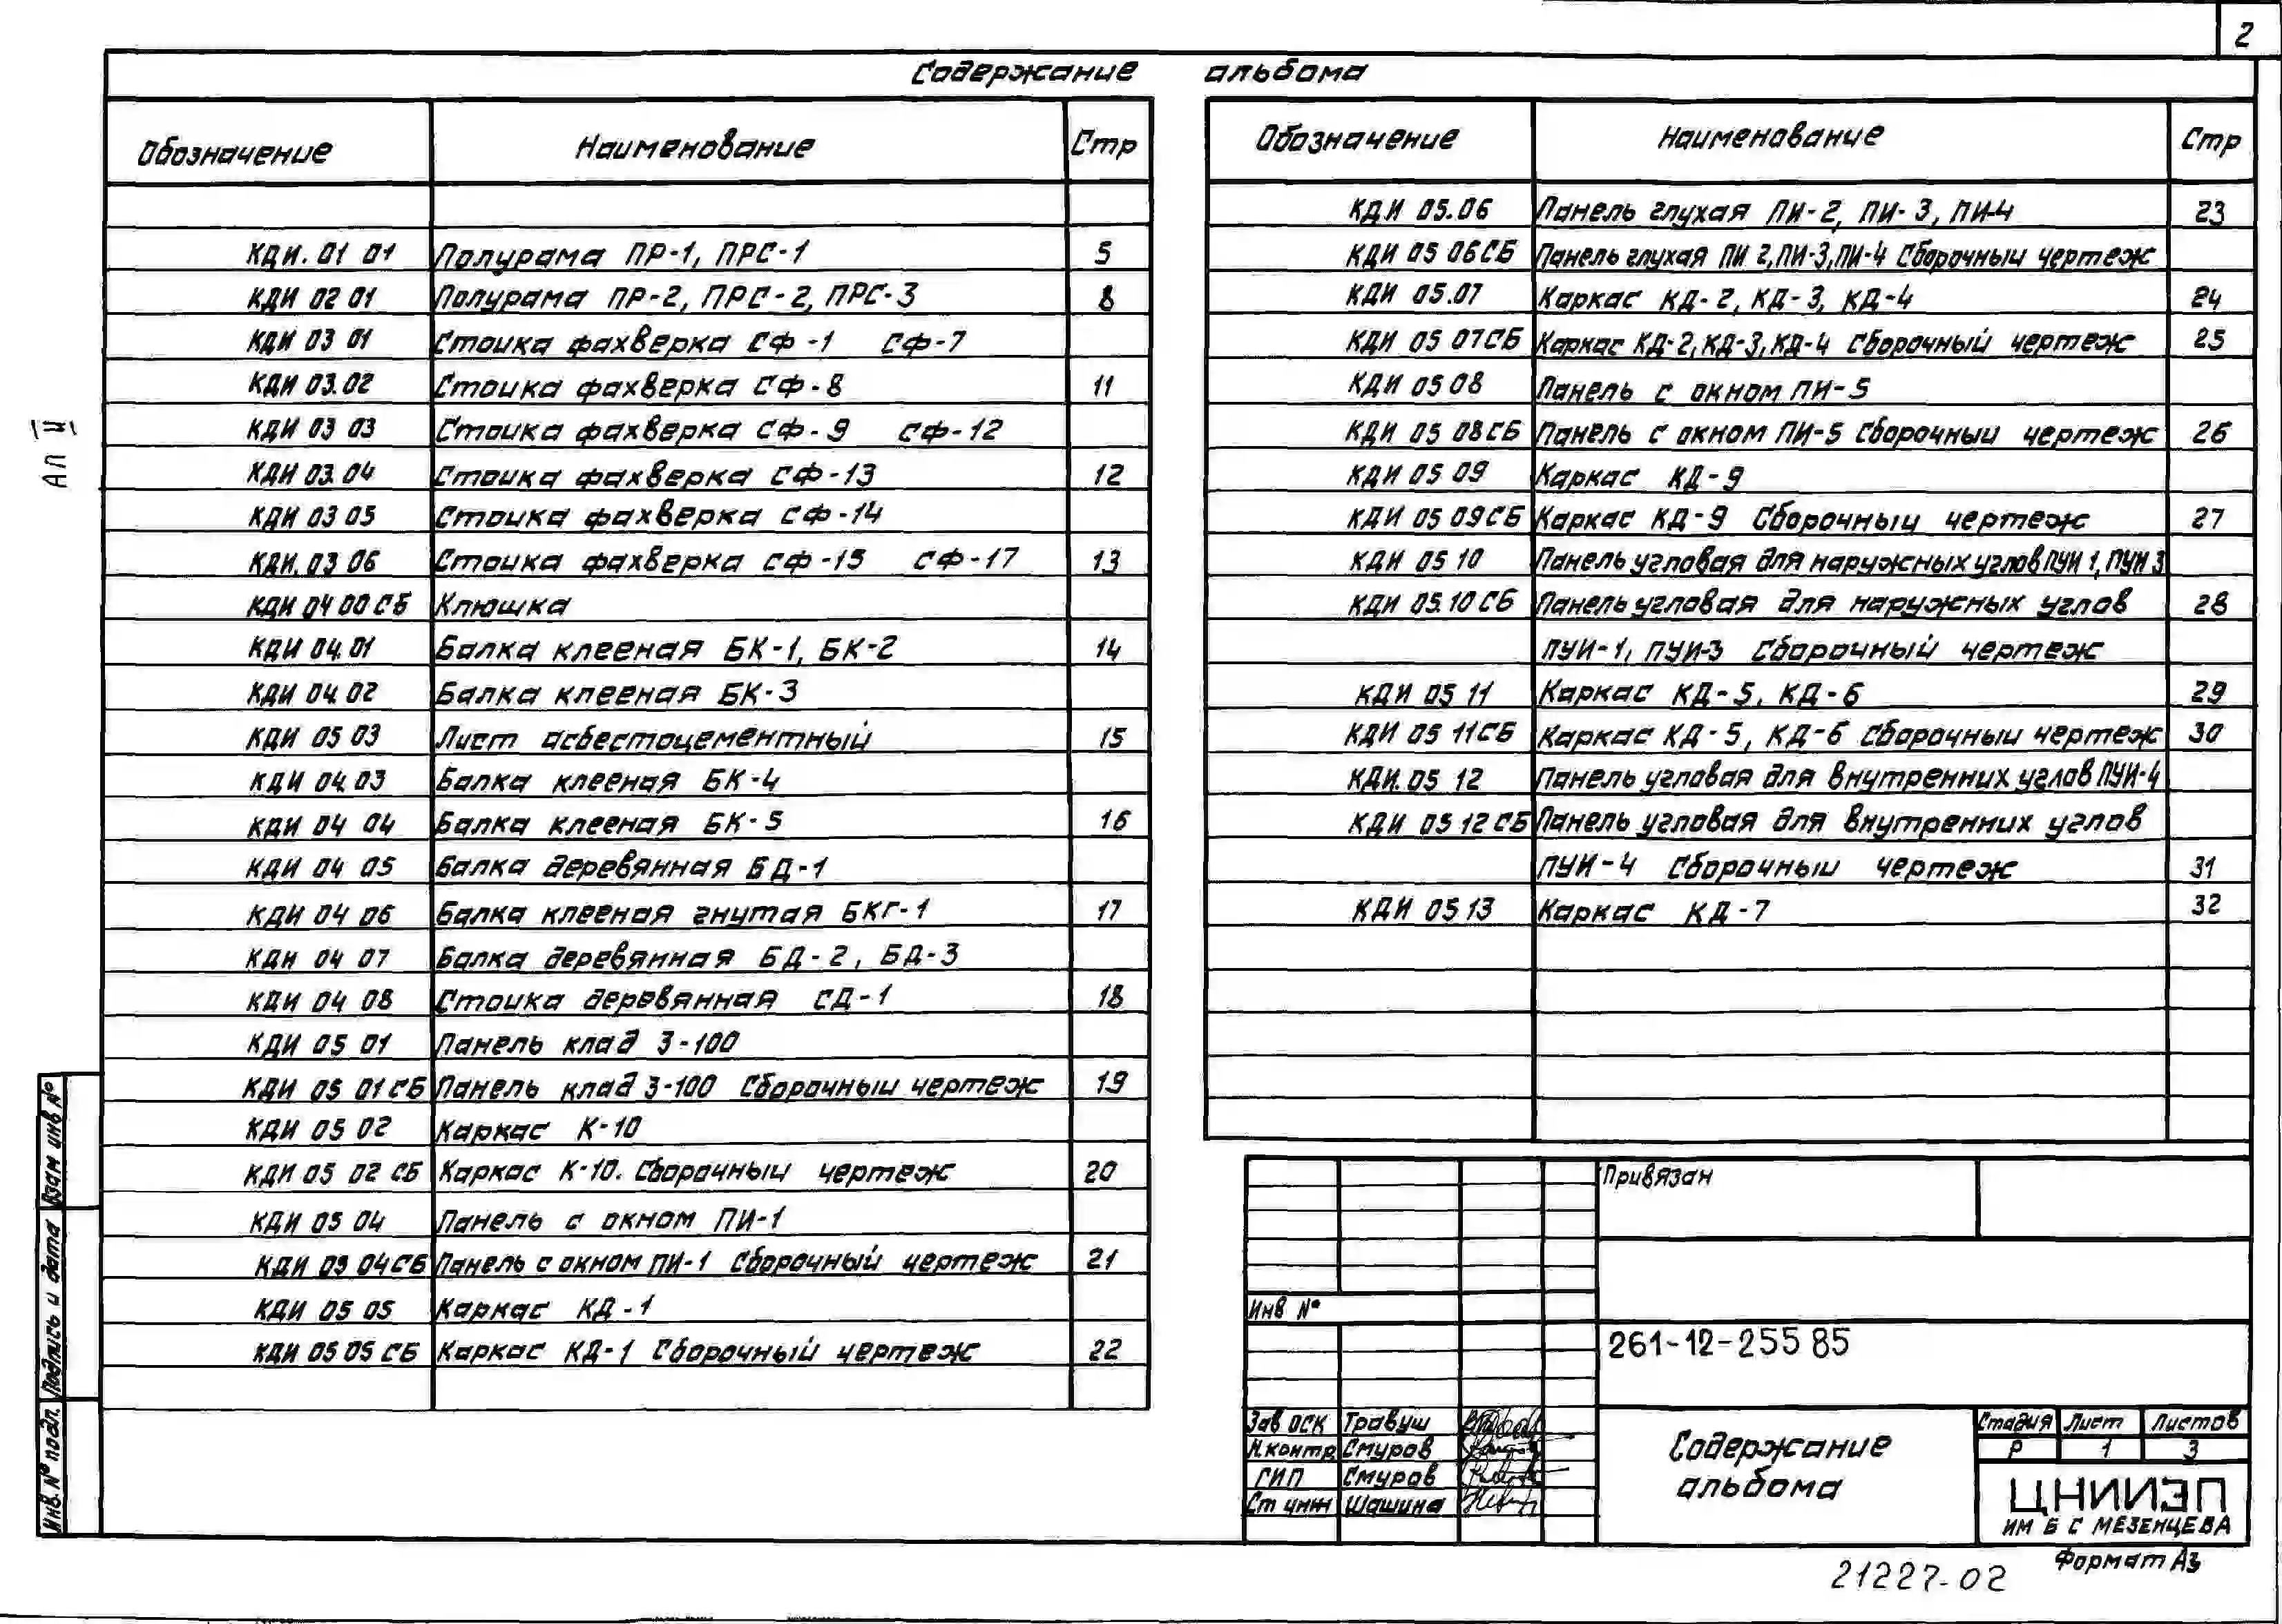 2
Содержание альбома
Обозначение Наименование Стр
КДИ. 01 01 Полурама ПР-1, ПРС-1 5
КДИ 02 01 Полурама ПР-2, ПРС-2, ПРС-3 8
КДИ 03 01 Стоика фахверка СФ-1 СФ-7
КДИ 03.02 Стоика фахверка СФ-8 11
КДИ 03 03 Стоика фахверка СФ-9 СФ-12
КДИ 03.04 Стоика фахверка СФ-13 12
КДИ 03 05 Стоика фахверка СФ-14
КДИ. 03 06 Стоика фахверка СФ-15 СФ-17 13
КДИ 04 00 СБ Клюшка
КДИ 04.01 Балка клееная БК-1, БК-2 14
КДИ 04.02 Балка клееная БК-3
КДИ 05 03 Лист асбестоцементный 15
КДИ 04.03 Балка клееная БК-4
КДИ 04 04 Балка клееная БК-5 16
КДИ 04 05 Балка деревянная БД-1
КДИ 04 06 Балка клееная гнутая БКГ-1 17
КДИ 04 07 Балка деревянная БД-2, БД-3
КДИ 04 08 Стоика деревянная СД-1 18
КДИ 05 01 Панель клад 3-100
КДИ 05 01 СБ Панель клад 3-100 Сборочныи чертеж 19
КДИ 05 02 Каркас К-10
КДИ 05 02 СБ Каркас К-10. Сборочныи чертеж 20
КДИ 05 04 Панель с окном ПИ-1
КДИ 05 04СБ Панель с окном ПИ-1 Сборочный чертеж 21
КДИ 05 05 Каркас КД-1
КДИ 05 05 СБ Каркас КД-1 Сборочный чертеж 22
Обозначение Наименование Стр
КДИ 05.06 Панель глухая ПИ-2, ПИ-3, ПИ-4 23
КДИ 05 06СБ Панель глухая ПИ 2, ПИ-3, ПИ-4 Сборочныи чертеж
КДИ 05.07 Каркас КД-2, КД-3, КД-4 24
КДИ 05 07СБ Каркас КД-2, КД-3, КД-4 Сборочный чертеж 25
КДИ 05 08 Панель с окном ПИ-5
КДИ 05 08СБ Панель с окном ПИ-5 Сборочныи чертеж 26
КДИ 05 09 Каркас КД-9
КДИ 05 09СБ Каркас КД-9 Сборочныи чертеж 27
КДИ 05 10 Панель угловая для наружных углов ПУИ 1, ПУИ 3
КДИ 05.10 СБ Панель угловая для наружных углов 28
ПУИ-1, ПУИ-3 Сборочный чертеж
КДИ 05 11 Каркас КД-5, КД-6 29
КДИ 05 11СБ Каркас КД-5, КД-6 Сборочныи чертеж 30
КДИ. 05 12 Панель угловая для внутренних углов ПУИ-4
КДИ 05 12 СБ Панель угловая для внутренних углов
ПУИ-4 Сборочныи чертеж 31
КДИ 05 13 Каркас КД-7 32
Ал II
Взам инв №
Подпись и дата
Инв. № подл.
Привязан
Инв №
261-12-255 85
Зав ОСК Травуш
Н.контр Смуров
ГИП Смуров
Ст инж Шашина
Содержание
альбома
Стадия Лист Листов
Р 1 3
ЦНИИЭП
ИМ Б С МЕЗЕНЦЕВА
Формат А3
21227-02